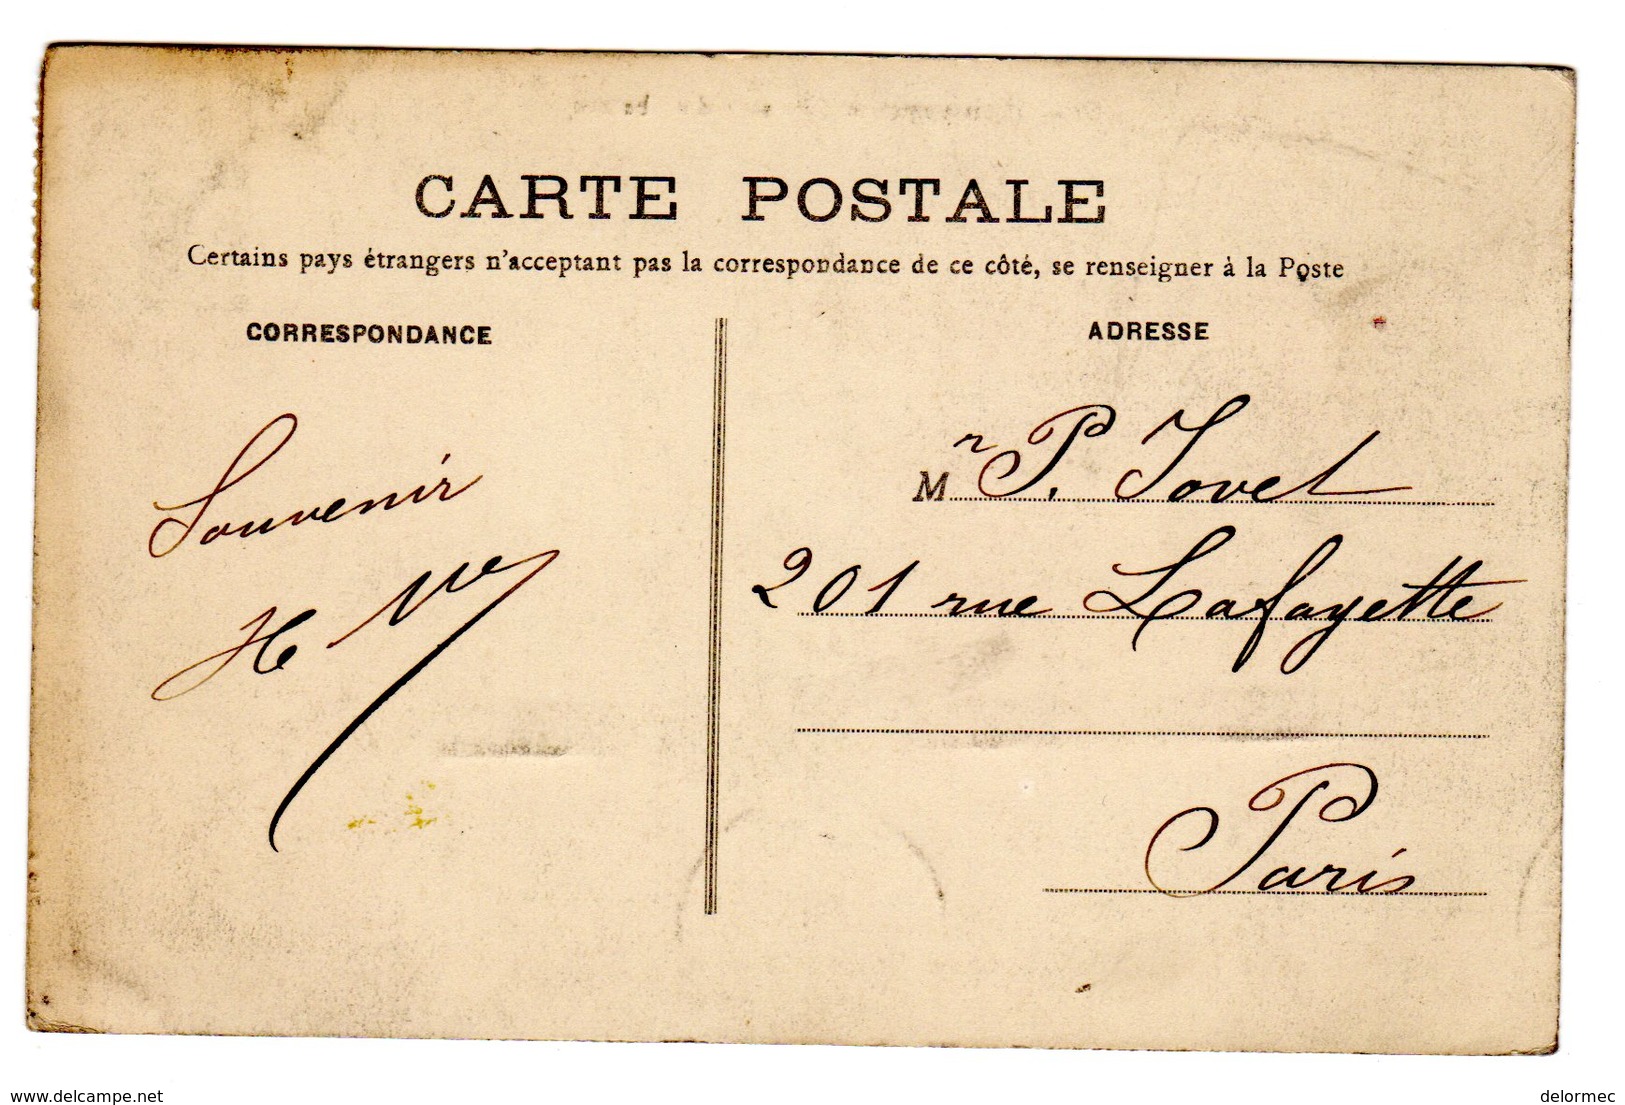 CARTE POSTALE
Certains pays étrangers n'acceptant pas la correspondance de ce côté, se renseigner à la Poste
CORRESPONDANCE
Souvenir
ADRESSE
Mr P. Jovet
201 rue Lafayette
Paris
www.delcampe.net
delormec